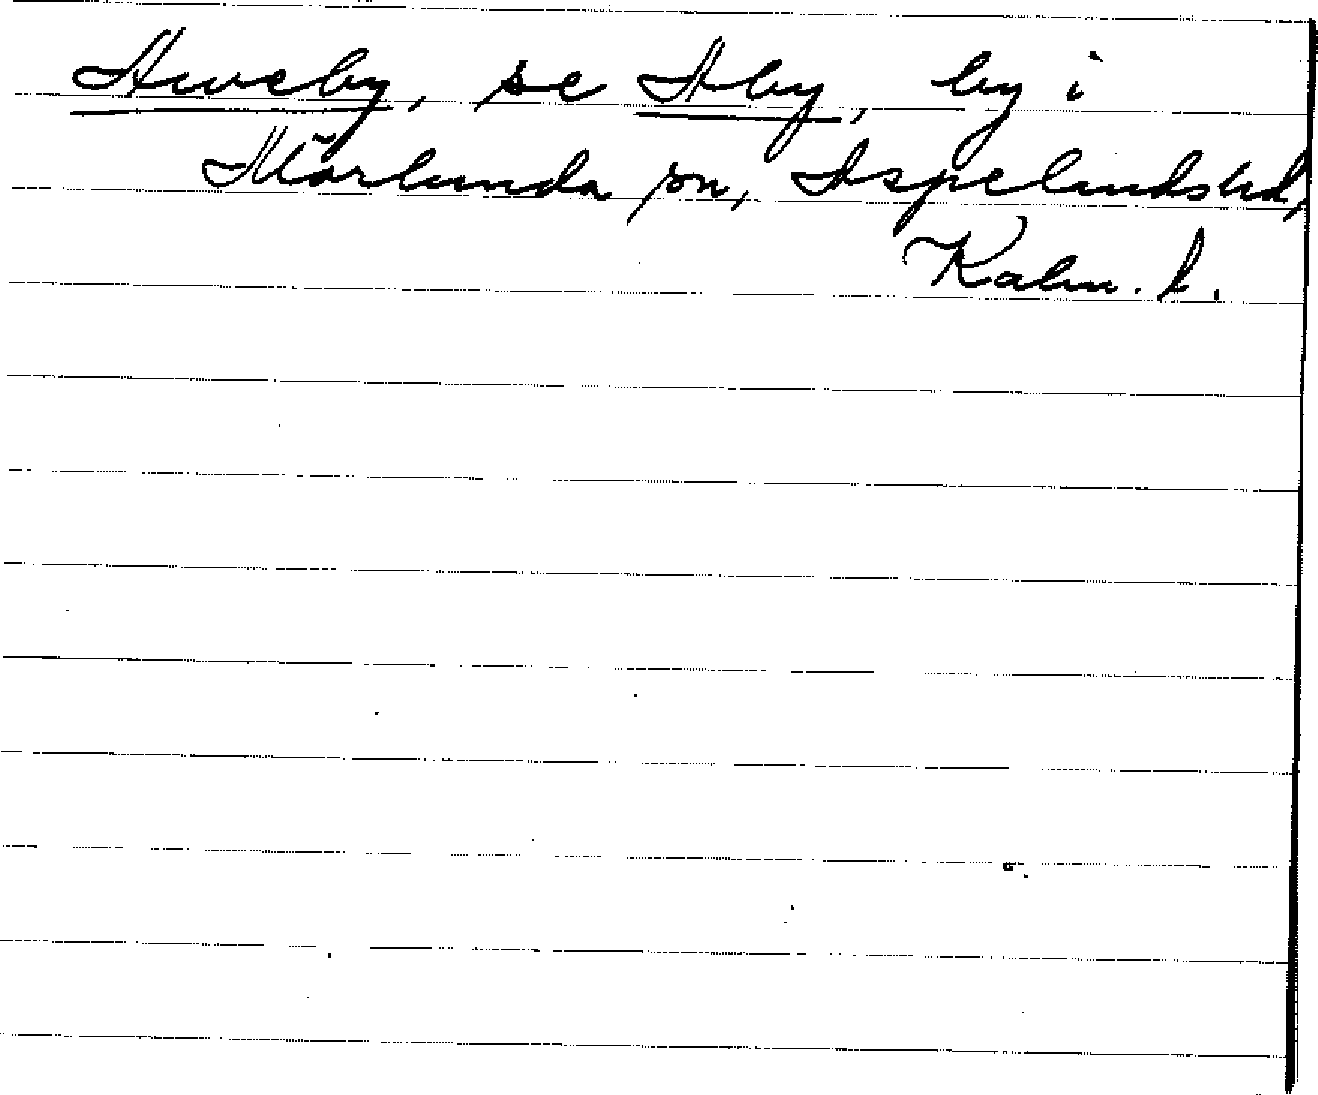 Aweby, se Aby, by i
Mörlunda sn, Aspelands hd,
Kalm. l.